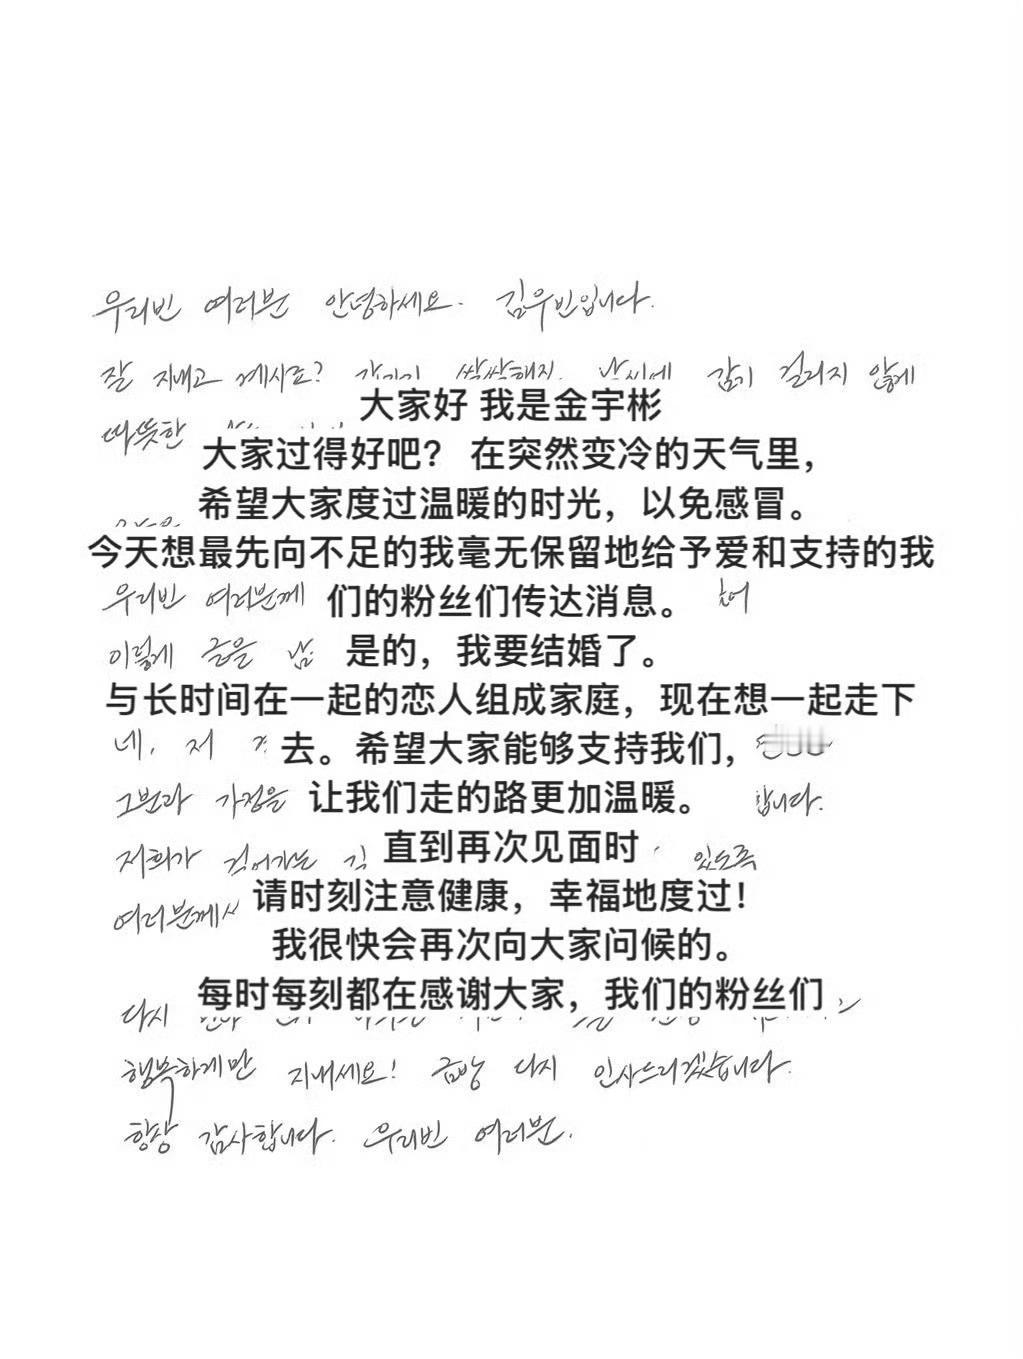 우리빈 여러분 안녕하세요. 김우빈입니다.
잘 지내고 계시죠? 쌀쌀해진 날씨에 감기 걸리지 않게
大家好 我是金宇彬
따뜻한
大家过得好吧？ 在突然变冷的天气里，
希望大家度过温暖的时光，以免感冒。
今天想最先向不足的我毫无保留地给予爱和支持的我
우리빈 여러분께 们的粉丝们传达消息。
이렇게 글을 是的，我要结婚了。
与长时间在一起的恋人组成家庭，现在想一起走下
네, 저 去。希望大家能够支持我们，
그분과 가정을 让我们走的路更加温暖。 합니다.
저희가 걸어가는 直到再次见面时 있도록
여러분께서 请时刻注意健康，幸福地度过！
我很快会再次向大家问候的。
다시 每时每刻都在感谢大家，我们的粉丝们
행복하게만 지내세요! 금방 다시 인사드리겠습니다.
항상 감사합니다. 우리빈 여러분.